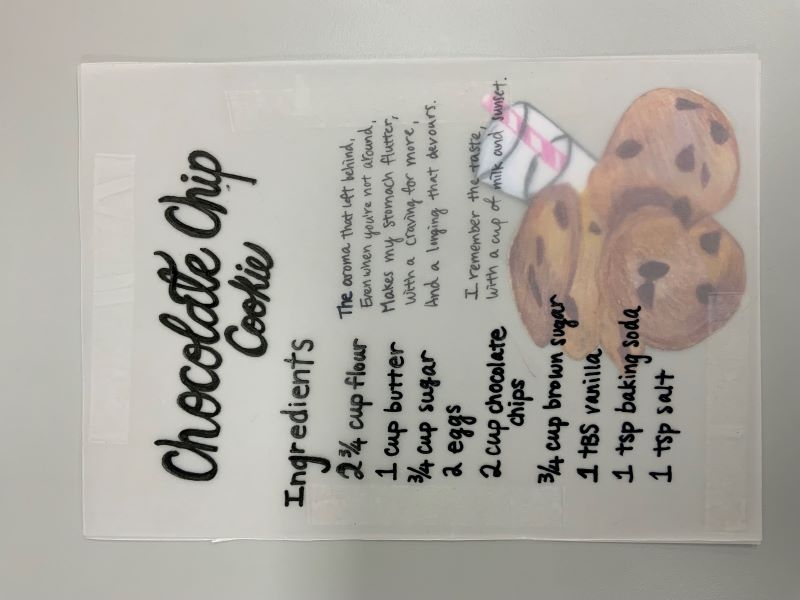 Chocolate Chip
Cookie
Ingredients
2 3/4 cup flour
1 cup butter
3/4 cup sugar
2 eggs
2 cup chocolate
chips
3/4 cup brown sugar
1 TBS vanilla
1 tsp baking soda
1 tsp salt
The aroma that left behind,
Even when you're not around,
Makes my stomach flutter,
With a craving for more,
And a longing that devours.
I remember the taste,
With a cup of milk and sunset.